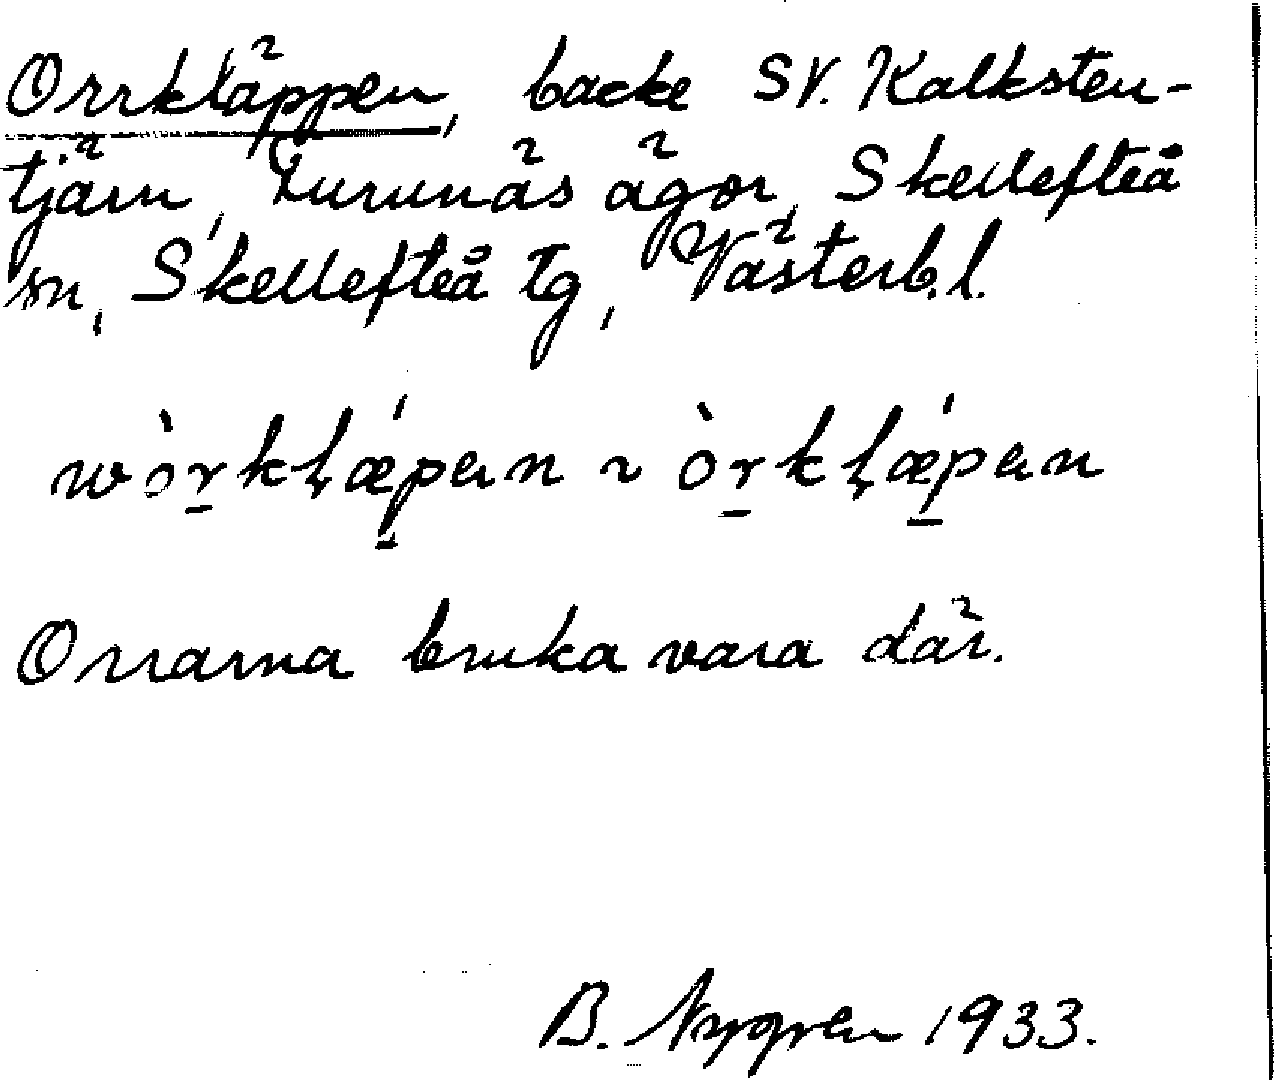 Orrkläppen, backe SV. Kalksten-
tjärn, Lurunäs ägor, Skellefteå
sn, Skellefteå tg, Västerb.l.
wòr̲kḷǽp̲ən ~ òr̲kḷǽp̲ən
Orrarna bruka vara där.
B. Nygren 1933.